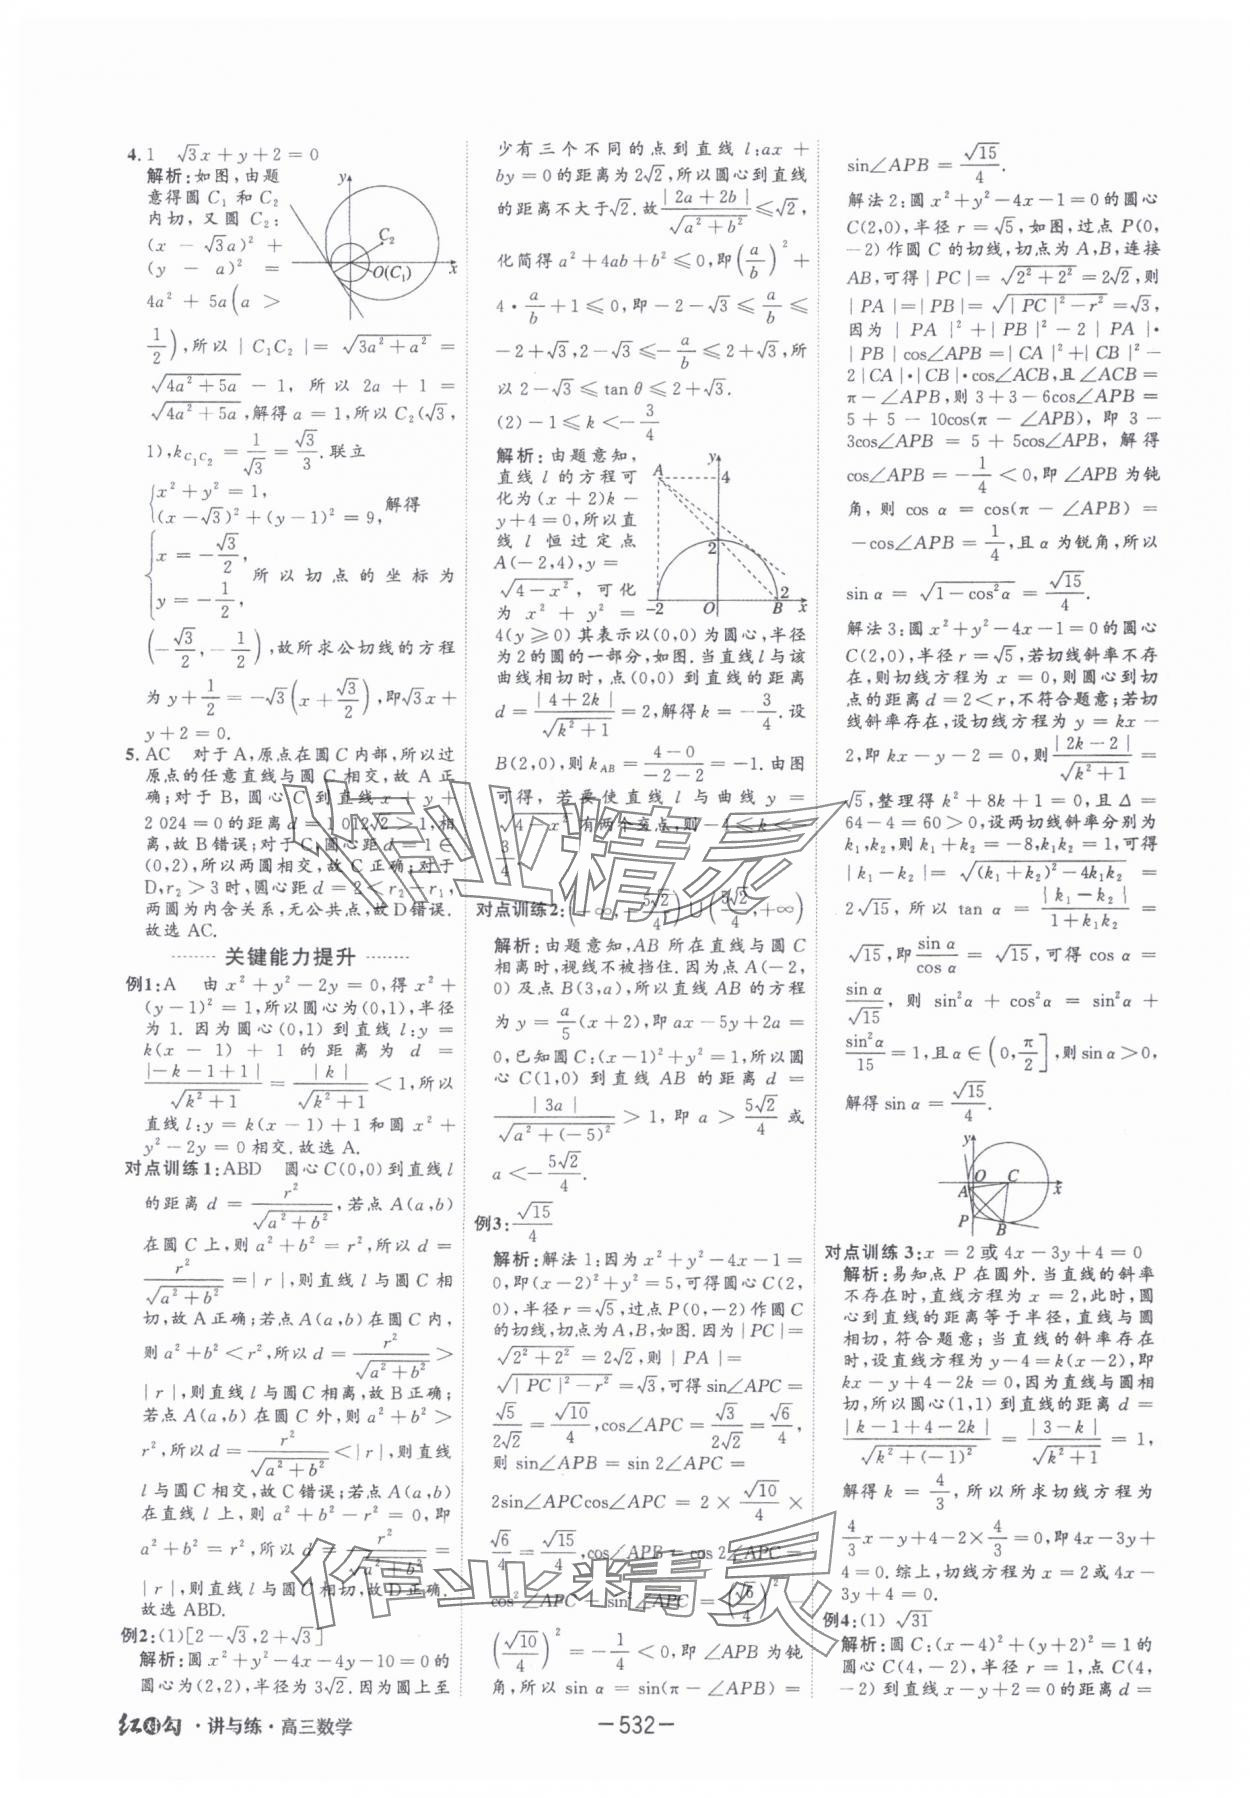 4. 1　√3x+y+2=0
解析:如图,由题
意得圆 C₁ 和 C₂
内切,又圆 C₂:
(x-√3a)²+
(y-a)²=
4a²+5a(a>
1/2),所以|C₁C₂|=√(3a²+a²)=
√(4a²+5a)-1,所以 2a+1=
√(4a²+5a),解得 a=1,所以 C₂(√3,
1),k_{C₁C₂}=1/√3=√3/3.联立
{x²+y²=1,
(x-√3)²+(y-1)²=9, 解得
{x=-√3/2,
y=-1/2, 所以切点的坐标为
(-√3/2,-1/2),故所求公切线的方程
为 y+1/2=-√3(x+√3/2),即√3x+
y+2=0.
y
C₂
O(C₁)
x
5. AC　对于 A,原点在圆 C 内部,所以过
原点的任意直线与圆 C 相交,故 A 正
确;对于 B,圆心 C 到直线 x+y+
2 024=0 的距离 d=1 012√2>1,相
离,故 B 错误;对于 C,圆心距 d=1∈
(0,2),所以两圆相交,故 C 正确;对于
D,r₂>3 时,圆心距 d=2<r₂-r₁,
两圆为内含关系,无公共点,故 D 错误.
故选 AC.
关键能力提升
例1:A　由 x²+y²-2y=0,得 x²+
(y-1)²=1,所以圆心为(0,1),半径
为 1. 因为圆心(0,1)到直线 l:y=
k(x-1)+1 的距离为 d=
|-k-1+1|/√(k²+1)=|k|/√(k²+1)<1,所以
直线 l:y=k(x-1)+1 和圆 x²+
y²-2y=0 相交.故选 A.
对点训练1:ABD　圆心 C(0,0)到直线 l
的距离 d=r²/√(a²+b²),若点 A(a,b)
在圆 C 上,则 a²+b²=r²,所以 d=
r²/√(a²+b²)=|r|,则直线 l 与圆 C 相
切,故 A 正确;若点 A(a,b)在圆 C 内,
则 a²+b²<r²,所以 d=r²/√(a²+b²)>
|r|,则直线 l 与圆 C 相离,故 B 正确;
若点 A(a,b)在圆 C 外,则 a²+b²>
r²,所以 d=r²/√(a²+b²)<|r|,则直线
l 与圆 C 相交,故 C 错误;若点 A(a,b)
在直线 l 上,则 a²+b²-r²=0,即
a²+b²=r²,所以 d=r²/√(a²+b²)=
|r|,则直线 l 与圆 C 相切,故 D 正确.
故选 ABD.
例2:(1)[2-√3,2+√3]
解析:圆 x²+y²-4x-4y-10=0 的
圆心为(2,2),半径为 3√2.因为圆上至
少有三个不同的点到直线 l:ax+
by=0 的距离为 2√2,所以圆心到直线
的距离不大于√2.故|2a+2b|/√(a²+b²)≤√2,
化简得 a²+4ab+b²≤0,即(a/b)²+
4·a/b+1≤0,即-2-√3≤a/b≤
-2+√3,2-√3≤-a/b≤2+√3,所
以 2-√3≤tan θ≤2+√3.
(2)-1≤k<-3/4
解析:由题意知,
直线 l 的方程可
化为(x+2)k-
y+4=0,所以直
线 l 恒过定点
A(-2,4),y=
√(4-x²),可化
为 x²+y²=
4(y≥0)其表示以(0,0)为圆心,半径
为 2 的圆的一部分,如图.当直线 l 与该
曲线相切时,点(0,0)到直线的距离
d=|4+2k|/√(k²+1)=2,解得 k=-3/4.设
B(2,0),则 k_{AB}=(4-0)/(-2-2)=-1.由图
可得,若要使直线 l 与曲线 y=
√(4-x²)有两个交点,则-1≤k<-
3/4.
y
A
4
2
-2
O
B
2
x
对点训练2:(-∞,-5√2/4)∪(5√2/4,+∞)
解析:由题意知,AB 所在直线与圆 C
相离时,视线不被挡住.因为点 A(-2,
0)及点 B(3,a),所以直线 AB 的方程
为 y=a/5(x+2),即 ax-5y+2a=
0,已知圆 C:(x-1)²+y²=1,所以圆
心 C(1,0)到直线 AB 的距离 d=
|3a|/√(a²+(-5)²)>1,即 a>5√2/4 或
a<-5√2/4.
例3:√15/4
解析:解法 1:因为 x²+y²-4x-1=
0,即(x-2)²+y²=5,可得圆心 C(2,
0),半径 r=√5,过点 P(0,-2)作圆 C
的切线,切点为 A,B,如图.因为|PC|=
√(2²+2²)=2√2,则|PA|=
√(|PC|²-r²)=√3,可得 sin∠APC=
√5/2√2=√10/4,cos∠APC=√3/2√2=√6/4,
则 sin∠APB=sin 2∠APC=
2sin∠APCcos∠APC=2×√10/4×
√6/4=√15/4,cos∠APB=cos 2∠APC=
cos²∠APC-sin²∠APC=(√6/4)²-
(√10/4)²=-1/4<0,即 ∠APB 为钝
角,所以 sin α=sin(π-∠APB)=
sin∠APB=√15/4.
解法 2:圆 x²+y²-4x-1=0 的圆心
C(2,0),半径 r=√5,如图,过点 P(0,
-2)作圆 C 的切线,切点为 A,B,连接
AB,可得|PC|=√(2²+2²)=2√2,则
|PA|=|PB|=√(|PC|²-r²)=√3,
因为|PA|²+|PB|²-2|PA|·
|PB|cos∠APB=|CA|²+|CB|²-
2|CA|·|CB|·cos∠ACB,且∠ACB=
π-∠APB,则 3+3-6cos∠APB=
5+5-10cos(π-∠APB),即 3-
3cos∠APB=5+5cos∠APB,解得
cos∠APB=-1/4<0,即 ∠APB 为钝
角,则 cos α=cos(π-∠APB)=
-cos∠APB=1/4,且 α 为锐角,所以
sin α=√(1-cos²α)=√15/4.
解法 3:圆 x²+y²-4x-1=0 的圆心
C(2,0),半径 r=√5,若切线斜率不存
在,则切线方程为 x=0,则圆心到切
点的距离 d=2<r,不符合题意;若切
线斜率存在,设切线方程为 y=kx-
2,即 kx-y-2=0,则|2k-2|/√(k²+1)=
√5,整理得 k²+8k+1=0,且 Δ=
64-4=60>0,设两切线斜率分别为
k₁,k₂,则 k₁+k₂=-8,k₁k₂=1,可得
|k₁-k₂|=√((k₁+k₂)²-4k₁k₂)=
2√15,所以 tan α=|k₁-k₂|/(1+k₁k₂)=
√15,即 sin α/cos α=√15,可得 cos α=
sin α/√15,则 sin²α+cos²α=sin²α+
sin²α/15=1,且 α∈(0,π/2],则 sin α>0,
解得 sin α=√15/4.
y
O
C
A
x
P
B
对点训练3:x=2 或 4x-3y+4=0
解析:易知点 P 在圆外.当直线的斜率
不存在时,直线方程为 x=2,此时,圆
心到直线的距离等于半径,直线与圆
相切,符合题意;当直线的斜率存在
时,设直线方程为 y-4=k(x-2),即
kx-y+4-2k=0,因为直线与圆相
切,所以圆心(1,1)到直线的距离 d=
|k-1+4-2k|/√(k²+(-1)²)=|3-k|/√(k²+1)=1,
解得 k=4/3,所以所求切线方程为
4/3x-y+4-2×4/3=0,即 4x-3y+
4=0.综上,切线方程为 x=2 或 4x-
3y+4=0.
例4:(1)√31
解析:圆 C:(x-4)²+(y+2)²=1 的
圆心 C(4,-2),半径为 1,点 C(4,
-2)到直线 4x-3y+4=0的距离 d=
红对勾·讲与练·高三数学
-532-
作业精灵
作业精灵